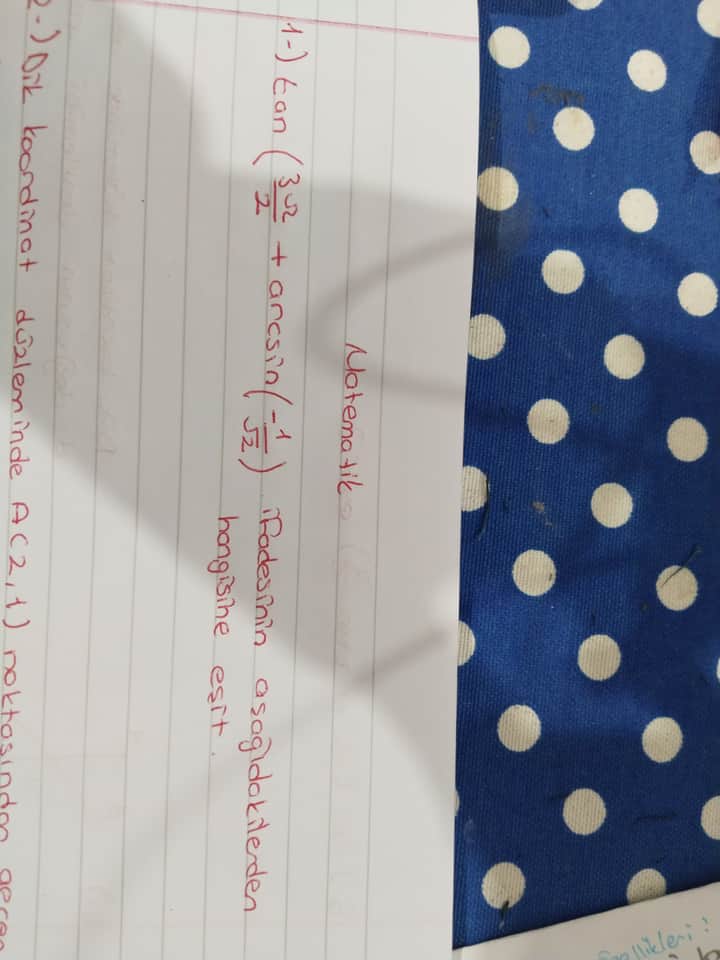 Matematik
1-) tan (3π/2 + arcsin(-1/√2)) ifadesinin aşağıdakilerden
hangisine eşit.
2-) Dik koordinat düzleminde A(2,1) noktasından geçen